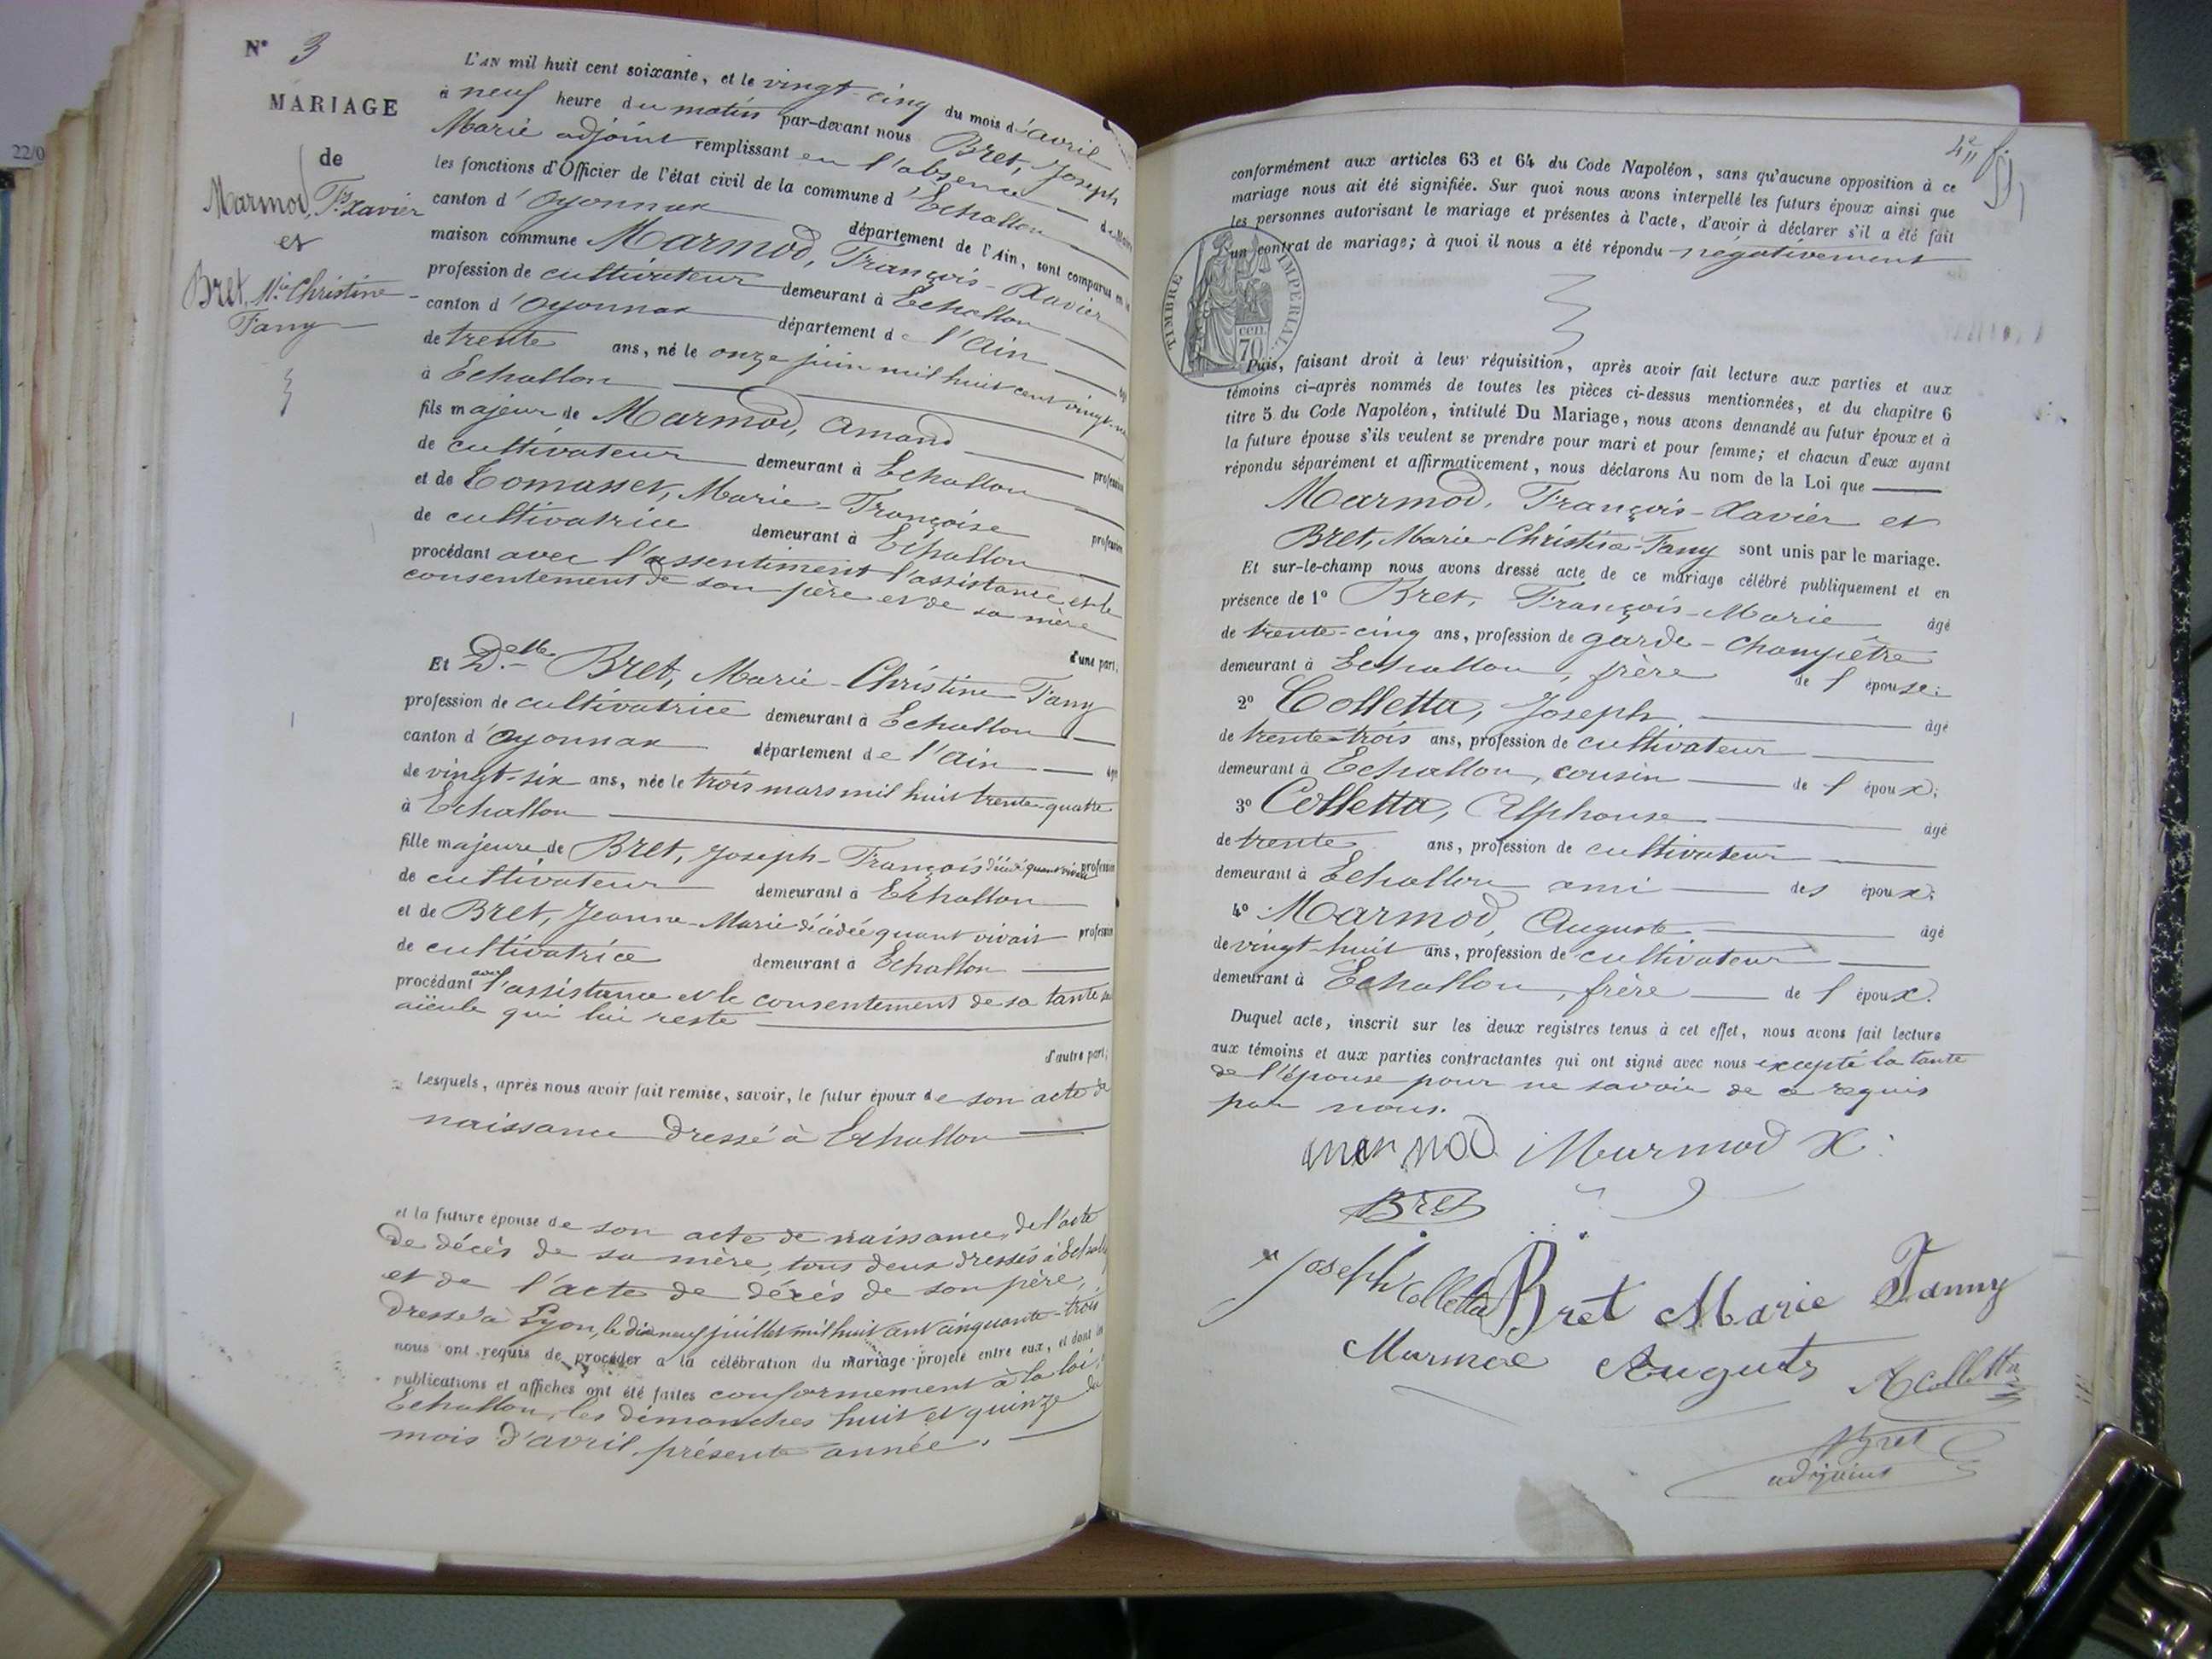 22/0
N° 3
MARIAGE
de
Marmod, Fs Xavier
et
Bret, Mie Christine
Fany
L'AN mil huit cent soixante, et le vingt-cinq du mois d'avril
à neuf heure du matin par-devant nous Bret, Joseph
Marie adjoint remplissant en l'absence du Maire
les fonctions d'Officier de l'état civil de la commune d'Echallon
canton d'Oyonnax département de l'Ain, sont comparus en la
maison commune Marmod, François-Xavier
profession de cultivateur demeurant à Echallon
canton d'Oyonnax département de l'Ain
de trente ans, né le onze juin mil huit cent vingt-
à Echallon
fils majeur de Marmod, Amand profession
de cultivateur demeurant à Echallon
et de Tomasset, Marie-Françoise profession
de cultivatrice demeurant à Echallon
procédant avec l'assentiment l'assistance et le
consentement de son père et de sa mère
d'une part,
Et Delle Bret, Marie-Christine Fany
profession de cultivatrice demeurant à Echallon
canton d'Oyonnax département de l'Ain
de vingt-six ans, née le trois mars mil huit trente-quatre
à Echallon
fille majeure de Bret, Joseph-François décédé quant vivait profession
de cultivateur demeurant à Echallon
et de Bret, Jeanne-Marie décédée quant vivait profession
de cultivatrice demeurant à Echallon
procédant avec l'assistance et le consentement de sa tante
aïeule qui lui reste
d'autre part;
Lesquels, après nous avoir fait remise, savoir, le futur époux de son acte de
naissance dressé à Echallon
et la future épouse de son acte de naissance, de l'acte
de décès de sa mère, tous deux dressés à Echallon
et de l'acte de décès de son père,
dressé à Lyon, le dix neuf juillet mil huit cent cinquante-trois
nous ont requis de procéder à la célébration du mariage projeté entre eux, et dont les
publications et affiches ont été faites conformement à la loi,
Echallon, les dimanches huit et quinze du
mois d'avril, présente année.
conformément aux articles 63 et 64 du Code Napoléon, sans qu'aucune opposition à ce
mariage nous ait été signifiée. Sur quoi nous avons interpellé les futurs époux ainsi que
les personnes autorisant le mariage et présentes à l'acte, d'avoir à déclarer s'il a été fait
un contrat de mariage; à quoi il nous a été répondu négativement
TIMBRE IMPERIAL
cen. 70
Puis, faisant droit à leur réquisition, après avoir fait lecture aux parties et aux
témoins ci-après nommés de toutes les pièces ci-dessus mentionnées, et du chapitre 6
titre 5 du Code Napoléon, intitulé Du Mariage, nous avons demandé au futur époux et à
la future épouse s'ils veulent se prendre pour mari et pour femme; et chacun d'eux ayant
répondu séparément et affirmativement, nous déclarons Au nom de la Loi que
Marmod, François-Xavier et
Bret, Marie-Christine-Fany sont unis par le mariage.
Et sur-le-champ nous avons dressé acte de ce mariage célébré publiquement et en
présence de 1° Bret, François-Marie âgé
de trente-cinq ans, profession de garde-champêtre
demeurant à Echallon, frère de l'épouse;
2° Colletta, Joseph. âgé
de trente-trois ans, profession de cultivateur
demeurant à Echallon, cousin de l'époux;
3° Colletta, Alphonse âgé
de trente ans, profession de cultivateur
demeurant à Echallon ami des époux;
4° Marmod, Auguste âgé
de vingt-huit ans, profession de cultivateur
demeurant à Echallon, frère de l'époux.
Duquel acte, inscrit sur les deux registres tenus à cet effet, nous avons fait lecture
aux témoins et aux parties contractantes qui ont signé avec nous excepté la tante
de l'épouse pour ne savoir de ce requis
par nous.
mermod Murmod X
Bret
Joseph Colletta Bret Marie Fanny
Murmod Auguts A Colletta
Bret
adjoint